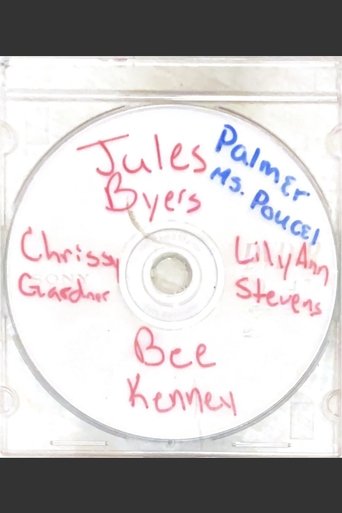 Jules
Byers
Palmer
Ms. Poucel
Chrissy
Gardner
LilyAnn
Stevens
Bee
Kenney